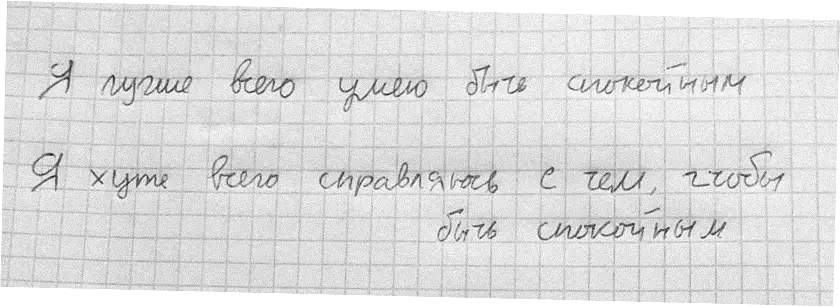 Я лучше всего умею быть спокойным
Я хуже всего справляюсь с тем, чтобы
быть спокойным